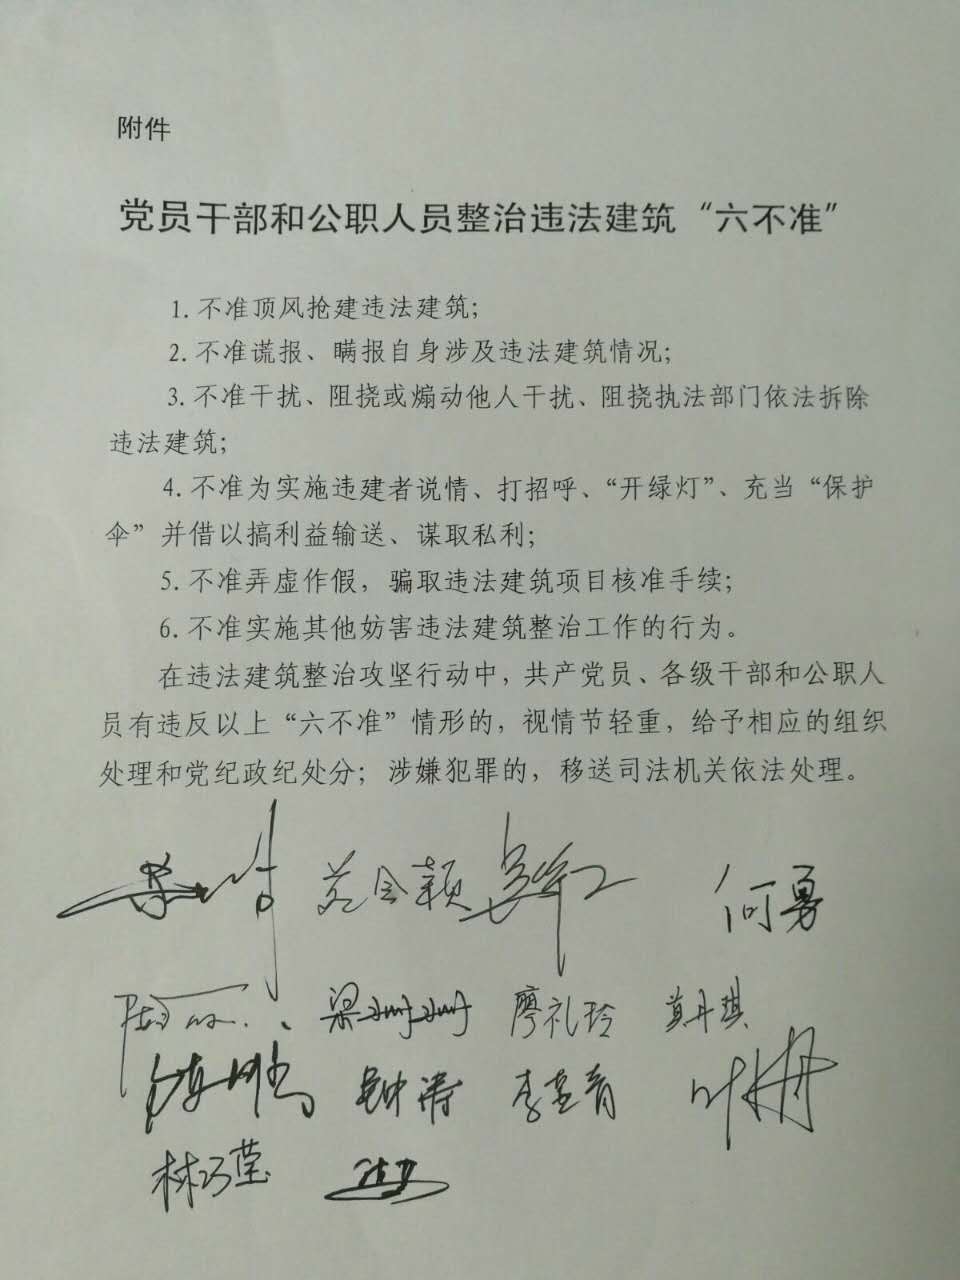 附件
党员干部和公职人员整治违法建筑“六不准”
1. 不准顶风抢建违法建筑；
2. 不准谎报、瞒报自身涉及违法建筑情况；
3. 不准干扰、阻挠或煽动他人干扰、阻挠执法部门依法拆除
违法建筑；
4. 不准为实施违建者说情、打招呼、“开绿灯”、充当“保护
伞”并借以搞利益输送、谋取私利；
5. 不准弄虚作假，骗取违法建筑项目核准手续；
6. 不准实施其他妨害违法建筑整治工作的行为。
在违法建筑整治攻坚行动中，共产党员、各级干部和公职人
员有违反以上“六不准”情形的，视情节轻重，给予相应的组织
处理和党纪政纪处分；涉嫌犯罪的，移送司法机关依法处理。
何勇
梁珊珊 廖礼玲 莫丹琪
钟涛
林巧莹